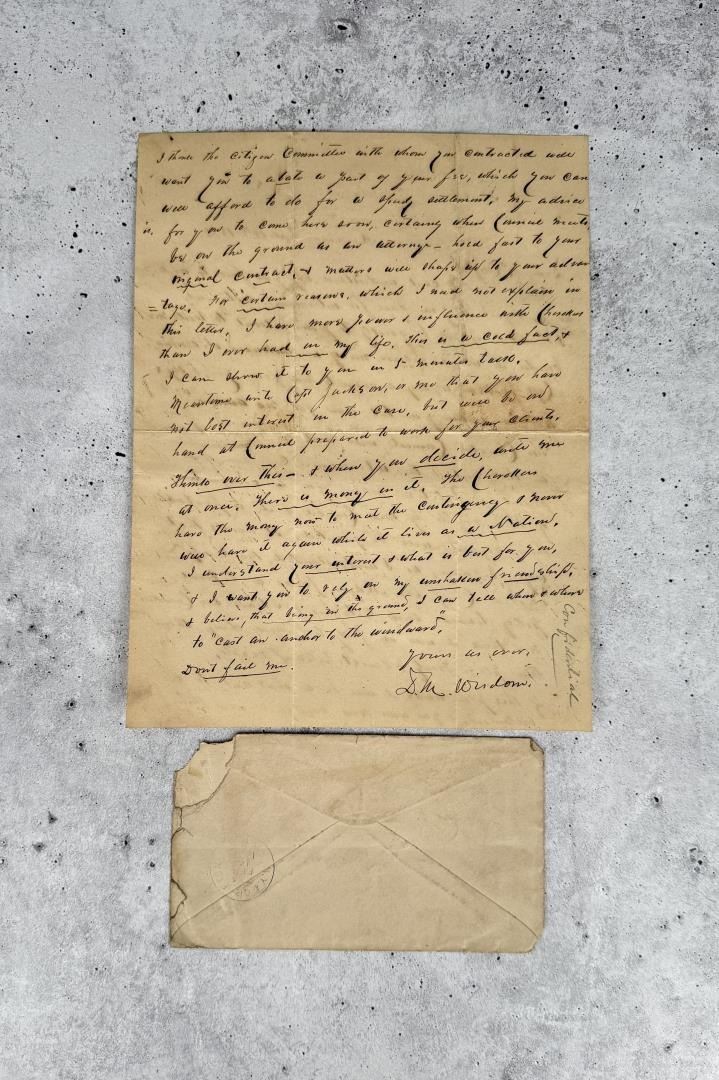 I think the Citizen Committee with whom you contracted will
want you to abate a part of your fee, which you can
well afford to do for a speedy settlement. My advice
is, for you to come here soon, certainly when Council meets
be on the ground as an attorney – hold fast to your
original contract, & matters will shape up to your advan
=tage. For certain reasons, which I need not explain in
this letter, I have more power & influence with Cherokees
than I ever had in my life. This is a cold fact, &
I can show it to you in 5 minutes talk.
Meantime write Capt Jackson, or me that you have
not lost interest in the case, but will be on
hand at Council prepared to work for your clients.
Think over this – & when you decide, write me
at once. There is money in it. The Cherokees
have the money now to meet the contingency & never
will have it again while it lives as a Nation.
I understand your interest & what is best for you,
& I want you to rely on my unshaken friendship,
& believe, that being on the ground, I can tell when & where
to "cast an anchor to the windward".
Dont fail me.
Yours as ever,
D.M. Wisdom.
Confidential